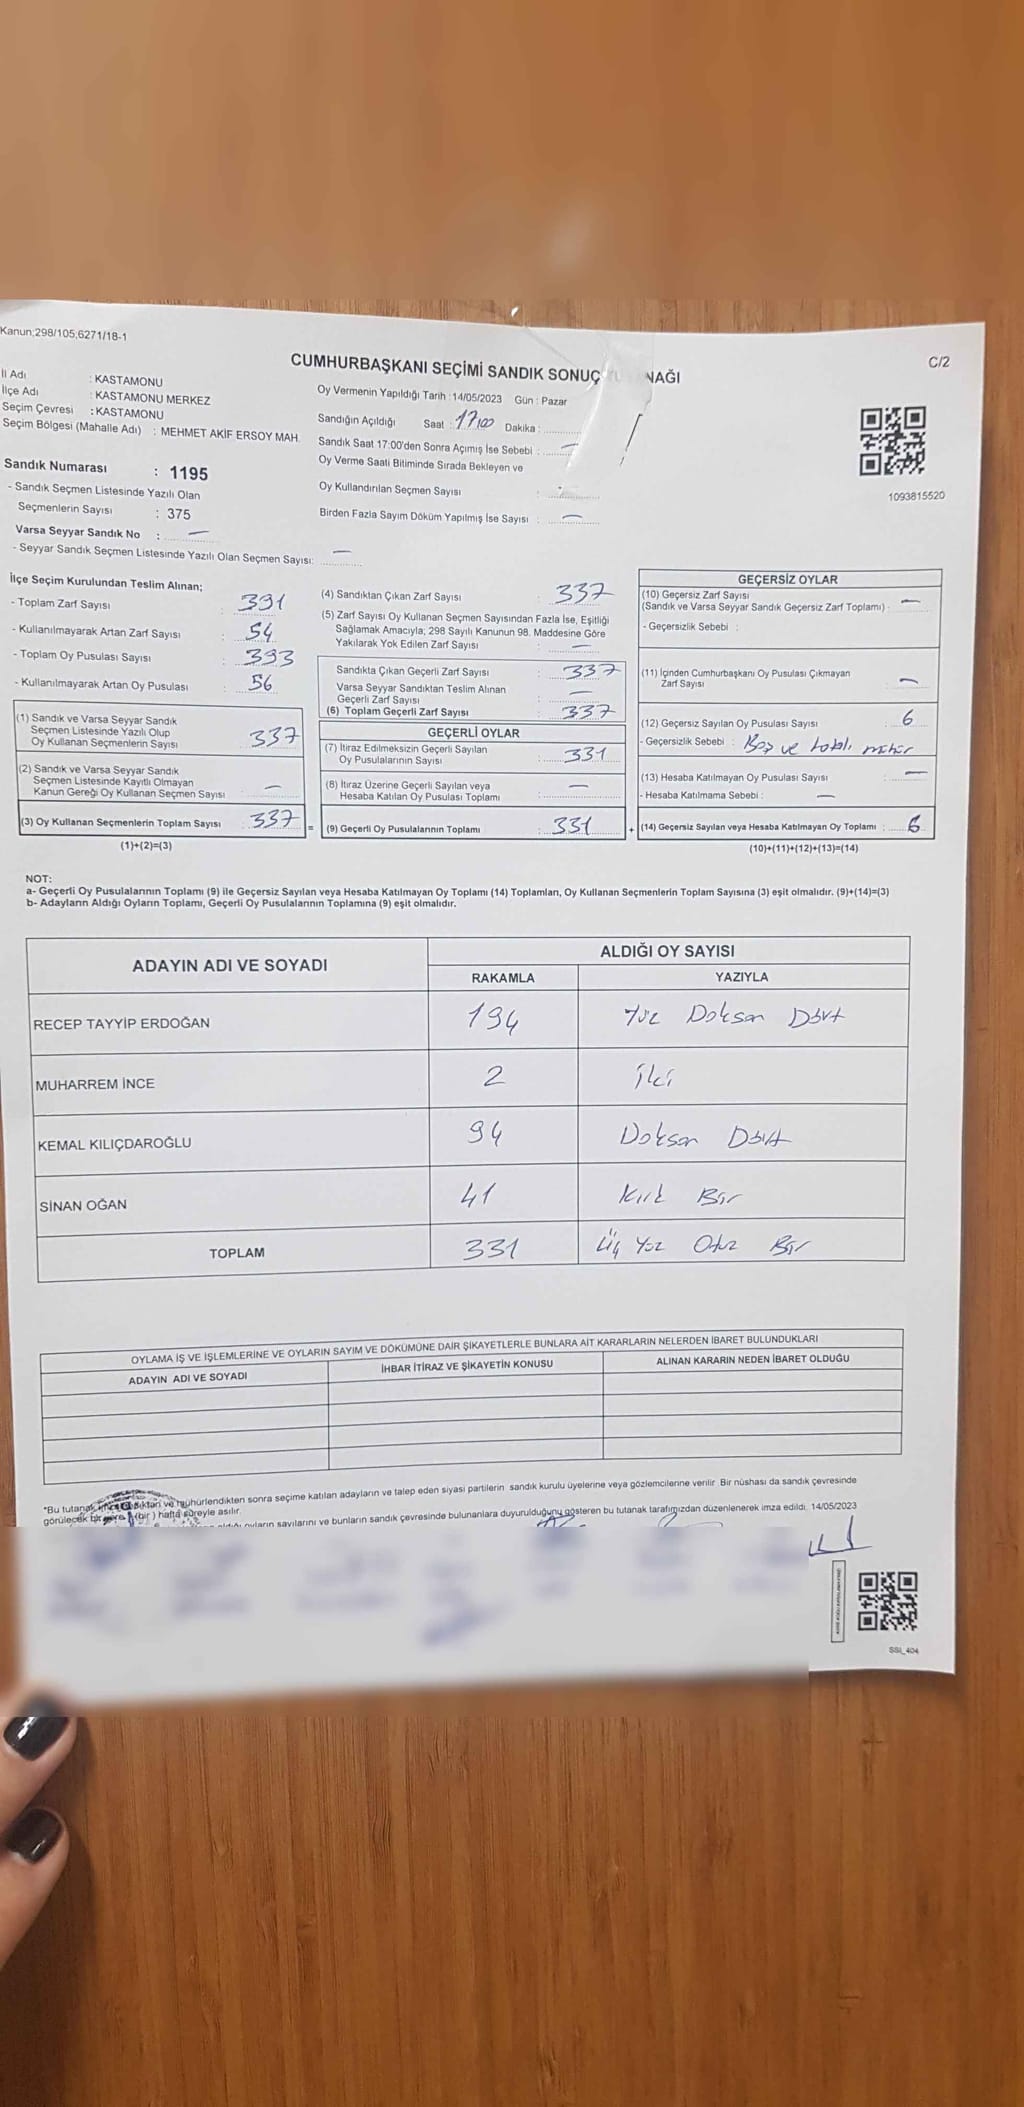 Kanun;298/105;6271/18-1
C/2
CUMHURBAŞKANI SEÇİMİ SANDIK SONUÇ NAĞI
İl Adı : KASTAMONU
İlçe Adı : KASTAMONU MERKEZ
Seçim Çevresi : KASTAMONU
Seçim Bölgesi (Mahalle Adı) : MEHMET AKİF ERSOY MAH.
Sandık Numarası : 1195
- Sandık Seçmen Listesinde Yazılı Olan
Seçmenlerin Sayısı : 375
Varsa Seyyar Sandık No : —
- Seyyar Sandık Seçmen Listesinde Yazılı Olan Seçmen Sayısı: —
Oy Vermenin Yapıldığı Tarih : 14/05/2023 Gün : Pazar
Sandığın Açıldığı Saat : 17,00 Dakika :
Sandık Saat 17:00'den Sonra Açımış İse Sebebi : —
Oy Verme Saati Bitiminde Sırada Bekleyen ve
Oy Kullandırılan Seçmen Sayısı :
Birden Fazla Sayım Döküm Yapılmış İse Sayısı : —
1093815520
İlçe Seçim Kurulundan Teslim Alınan;
- Toplam Zarf Sayısı : 391
- Kullanılmayarak Artan Zarf Sayısı : 54
- Toplam Oy Pusulası Sayısı : 393
- Kullanılmayarak Artan Oy Pusulası : 56
(1) Sandık ve Varsa Seyyar Sandık
Seçmen Listesinde Yazılı Olup
Oy Kullanan Seçmenlerin Sayısı : 337
(2) Sandık ve Varsa Seyyar Sandık
Seçmen Listesinde Kayıtlı Olmayan
Kanun Gereği Oy Kullanan Seçmen Sayısı : —
(3) Oy Kullanan Seçmenlerin Toplam Sayısı : 337 =
(1)+(2)=(3)
(4) Sandıktan Çıkan Zarf Sayısı : 337
(5) Zarf Sayısı Oy Kullanan Seçmen Sayısından Fazla İse, Eşitliği
Sağlamak Amacıyla; 298 Sayılı Kanunun 98. Maddesine Göre
Yakılarak Yok Edilen Zarf Sayısı : —
Sandıkta Çıkan Geçerli Zarf Sayısı : 337
Varsa Seyyar Sandıktan Teslim Alınan
Geçerli Zarf Sayısı : —
(6) Toplam Geçerli Zarf Sayısı : 337
GEÇERLİ OYLAR
(7) İtiraz Edilmeksizin Geçerli Sayılan
Oy Pusulalarının Sayısı : 331
(8) İtiraz Üzerine Geçerli Sayılan veya
Hesaba Katılan Oy Pusulası Toplamı : —
(9) Geçerli Oy Pusulalarının Toplamı : 331 +
GEÇERSİZ OYLAR
(10) Geçersiz Zarf Sayısı
(Sandık ve Varsa Seyyar Sandık Geçersiz Zarf Toplamı) : —
- Geçersizlik Sebebi :
(11) İçinden Cumhurbaşkanı Oy Pusulası Çıkmayan
Zarf Sayısı : —
(12) Geçersiz Sayılan Oy Pusulası Sayısı : 6
- Geçersizlik Sebebi : Boş ve hatalı mühür
(13) Hesaba Katılmayan Oy Pusulası Sayısı : —
- Hesaba Katılmama Sebebi : —
(14) Geçersiz Sayılan veya Hesaba Katılmayan Oy Toplamı : 6
(10)+(11)+(12)+(13)=(14)
NOT:
a- Geçerli Oy Pusulalarının Toplamı (9) ile Geçersiz Sayılan veya Hesaba Katılmayan Oy Toplamı (14) Toplamları, Oy Kullanan Seçmenlerin Toplam Sayısına (3) eşit olmalıdır. (9)+(14)=(3)
b- Adayların Aldığı Oyların Toplamı, Geçerli Oy Pusulalarının Toplamına (9) eşit olmalıdır.
ADAYIN ADI VE SOYADI ALDIĞI OY SAYISI
RAKAMLA YAZIYLA
RECEP TAYYİP ERDOĞAN 194 Yüz Doksan Dört
MUHARREM İNCE 2 İki
KEMAL KILIÇDAROĞLU 94 Doksan Dört
SİNAN OĞAN 41 Kırk Bir
TOPLAM 331 Üç Yüz Otuz Bir
OYLAMA İŞ VE İŞLEMLERİNE VE OYLARIN SAYIM VE DÖKÜMÜNE DAİR ŞİKAYETLERLE BUNLARA AİT KARARLARIN NELERDEN İBARET BULUNDUKLARI
ADAYIN ADI VE SOYADI İHBAR İTİRAZ VE ŞİKAYETİN KONUSU ALINAN KARARIN NEDEN İBARET OLDUĞU
*Bu tutanak mühürlendikten sonra seçime katılan adayların ve talep eden siyasi partilerin sandık kurulu üyelerine veya gözlemcilerine verilir. Bir nüshası da sandık çevresinde
görülecek bir yere 1 (bir) hafta süreyle asılır.
oyların sayılarını ve bunların sandık çevresinde bulunanlara duyurulduğunu gösteren bu tutanak tarafımızdan düzenlenerek imza edildi. 14/05/2023
SSI_404